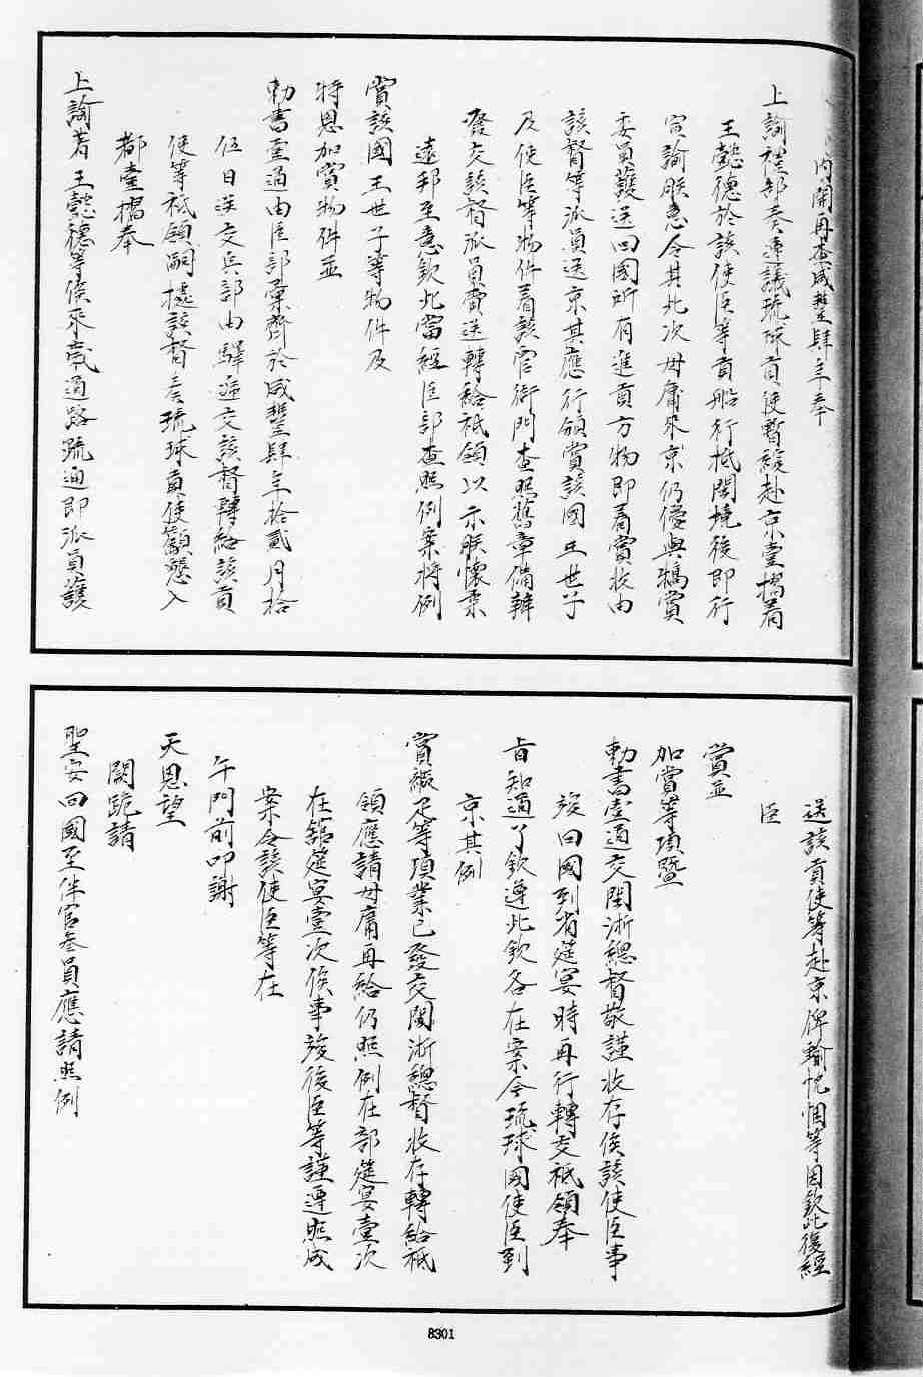 內開再查咸豐肆年奉
上諭禮部奏遵議琉球貢使暫緩赴京壹摺着
王懿德於該使臣等貢船行抵閩境後即行
宣諭朕意令其此次毋庸來京仍優與犒賞
委員護送回國所有進貢方物即着賞收由
該督等派員送京其應行頒賞該國王世子
及使臣等物件着該官衙門查照舊章備辦
發交該督派員賫送轉給祇領以示朕懷柔
遠邦至意欽此當經臣部查照例案將例
賞該國王世子等物件及
特恩加賞物件並
勅書壹通由臣部彙齊於咸豐肆年拾貳月拾
伍日送交兵部由驛遞交該督轉給該貢
使等祇領嗣據該督奏琉球貢使籲懇入
都壹摺奉
上諭着王懿德等俟來歲道路疏通即派員護
送該貢使等赴京俾輸忱悃等因欽此復經
臣
賞並
加賞等項暨
勅書壹通交閩浙總督敬謹收存俟該使臣事
竣回國到省筵宴時再行轉交祇領奉
旨知道了欽遵此欽各在案今琉球國使臣到
京其例
賞緞疋等項業已發交閩浙總督收存轉給祇
領應請毋庸再給仍照例在部筵宴壹次
在舘筵宴壹次俟事竣後臣等謹遵照成
案令該使臣等在
午門前叩謝
天恩望
闕跪請
聖安回國至伴官叁員應請照例
8301